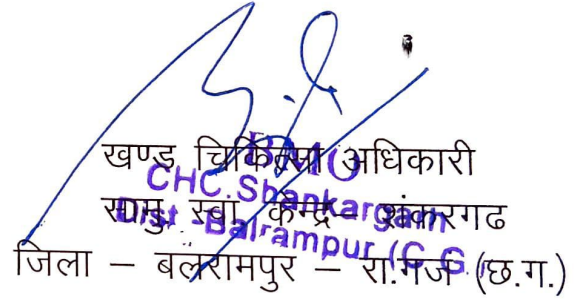 खण्ड चिकित्सा अधिकारी
सामु. स्वा. केन्द्र – शंकरगढ
जिला – बलरामपुर – रा.गंज (छ.ग.)
BMO
CHC. Shankargarh
Dist - Balrampur (C.G.)